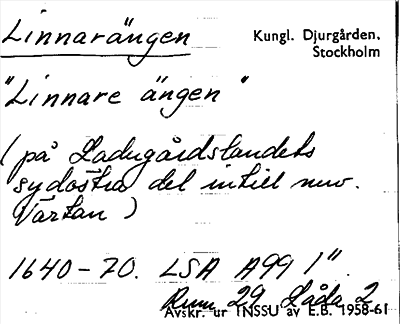 Linnarängen
Kungl. Djurgården,
Stockholm
"Linnare ängen"
(på Ladugårdslandets
sydöstra del intill nuv.
Värtan)
1640-70. LSA A99 1"
Rum 29 Låda 2
Avskr. ur TNSSU av E.B. 1958-61